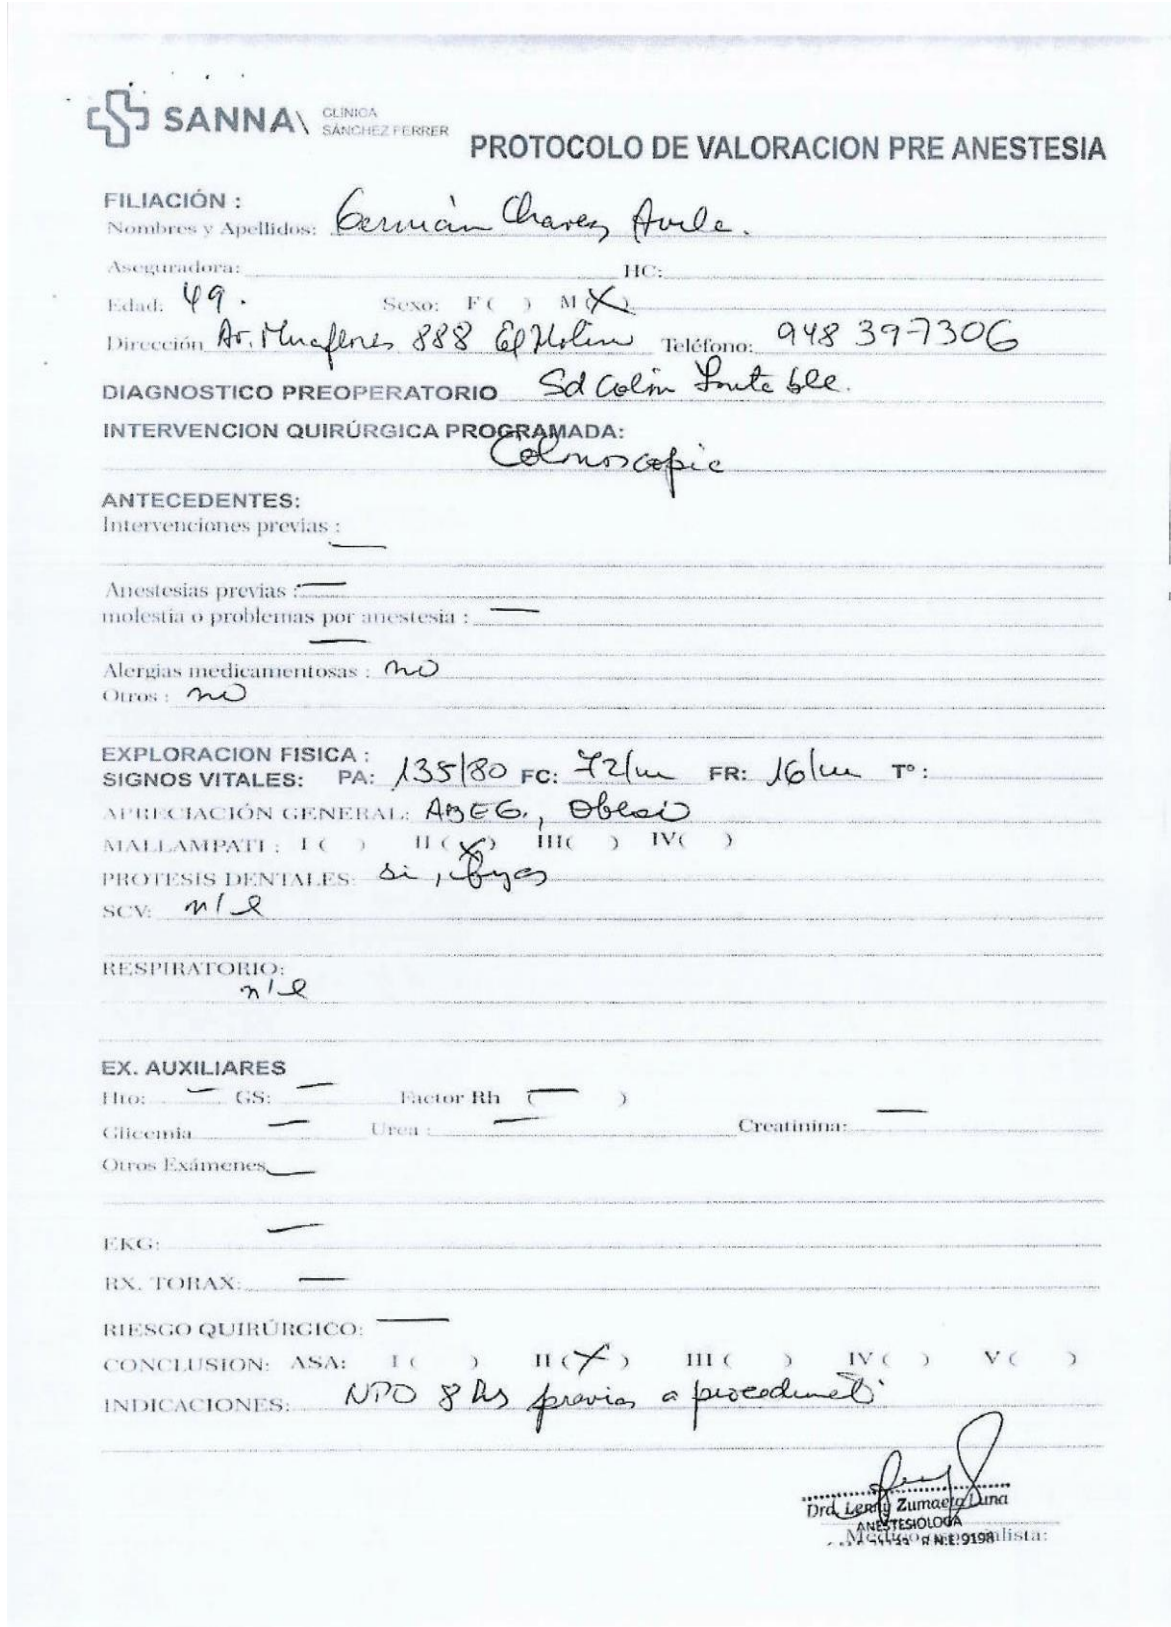 SANNA\ CLÍNICA
SÁNCHEZ FERRER
PROTOCOLO DE VALORACION PRE ANESTESIA
FILIACIÓN :
Nombres y Apellidos: Germán Chavez Avila.
Aseguradora: HC:
Edad: 49. Sexo: F ( ) M (X)
Dirección Av. Miraflores 888 El Molino Teléfono: 948 397306
DIAGNOSTICO PREOPERATORIO Sd Colon Irritable.
INTERVENCION QUIRÚRGICA PROGRAMADA:
Colonoscopia
ANTECEDENTES:
Intervenciones previas : —
Anestesias previas : —
molestia o problemas por anestesia : —
—
Alergias medicamentosas : no
Otros : no
EXPLORACION FISICA :
SIGNOS VITALES: PA: 135/80 FC: 72/m FR: 16/m Tº :
APRECIACIÓN GENERAL: ABEG., Obeso
MALLAMPATI : I ( ) II (X) III( ) IV( )
PROTESIS DENTALES: si, fijas
SCV: n/l
RESPIRATORIO:
n/l
EX. AUXILIARES
Hto: — GS: — Factor Rh ( — )
Glicemia — Urea : — Creatinina: —
Otros Exámenes —
EKG: —
RX. TORAX: —
RIESGO QUIRÚRGICO: —
CONCLUSION: ASA: I ( ) II (X) III ( ) IV ( ) V ( )
INDICACIONES: NPO 8 hs previas a procedimiento
Dra. Lenny Zumaeta Luna
ANESTESIOLOGA
R.N.E. 9198
Médico especialista: